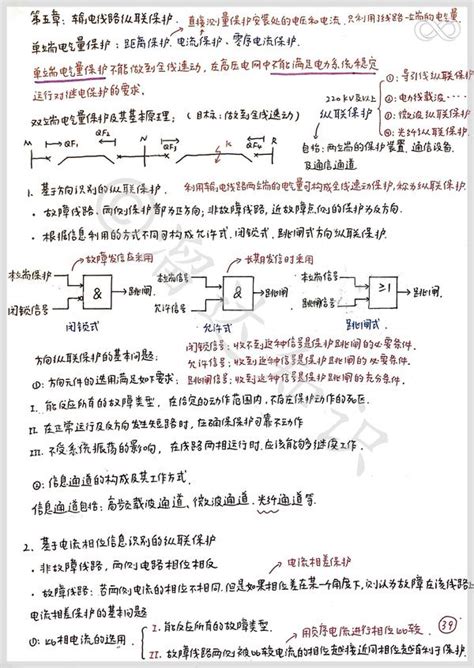 第五章:输电线路纵联保护.
直接测量保护安装处的电压和电流,只利用了线路一端的电气量.
单端电气量保护:距离保护、电流保护、零序电流保护.
单端电气量保护不能做到全线速动,在高压电网中不能满足电力系统稳定
运行对继电保护的要求.
220KV及以上
纵联保护
①:导引线纵联保护
②:电力线载波……
③:微波纵联保护
④:光纤纵联保护
双端电气量保护及其基本原理:(目标:做到全线速动)
自指:两端的保护装置、通信设备
及通信通道
M QF1 QF2 N QF3 K QF4 R
1. 基于方向识别的纵联保护.
利用输电线路两端的电气量可构成全线速动保护,称为纵联保护.
· 故障线路,两侧保护都为正方向;非故障线路,近故障点侧的保护为反方向.
· 根据信息利用的方式不同可构成允许式、闭锁式、跳闸式方向纵联保护.
故障发信应采用
长期发信时采用
本端保护
闭锁信号
&
跳闸
闭锁式
本端信号
允许信号
&
跳闸
允许式
本端信号
跳闸信号
≥1
跳闸
跳闸式
闭锁信号:收不到这种信号是保护跳闸的必要条件.
允许信号:收到这种信号是保护跳闸的必要条件.
跳闸信号:收到这种信号是保护跳闸的充分条件.
方向纵联保护的基本问题:
①:方向元件的选用满足如下要求:
I. 能反应所有的故障类型,在给定的动作范围内,不存在保护动作的死区
II. 在正常运行及反方向发生短路时,应确保保护可靠不动作
III. 不受系统振荡的影响,在线路两相运行时,应该能够继续工作.
②:信息通道的构成及其工作方式.
信息通道自指:高频载波通道、微波通道、光纤通道等.
2. 基于电流相位信息识别的纵联保护
· 非故障线路,两侧电路相位相反
电流相差保护
· 故障线路:若两侧电流的相位不相同.但是如果相位差在某一个角度下,则认为故障在该线路上
电流相差保护的基本问题
①:比相电流的选用
I. 能反应所有的故障类型.
用负序电流进行相位比较
II. 故障线路两侧被比较电流的相位越接近同相位越有利于保护.
39